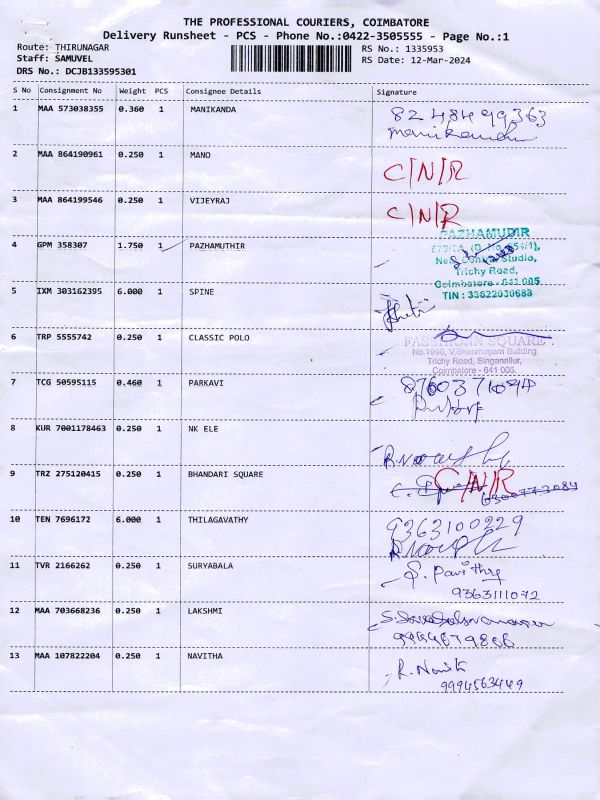 THE PROFESSIONAL COURIERS, COIMBATORE
Delivery Runsheet - PCS - Phone No.:0422-3505555 - Page No.:1
Route: THIRUNAGAR RS No.: 1335953
Staff: SAMUVEL RS Date: 12-Mar-2024
DRS No.: DCJB133595301
S No Consignment No Weight PCS Consignee Details Signature
1 MAA 573038355 0.360 1 MANIKANDA 8248499363
2 MAA 864190961 0.250 1 MANO C/N/R
3 MAA 864199546 0.250 1 VIJEYRAJ C/N/R
PAZHAMUDIR
4 GPM 358307 1.750 1 PAZHAMUTHIR
Studio,
Trichy Road,
Coimbatore - 641 005
5 IXM 303162395 6.000 1 SPINE TIN : 33622030688
6 TRP 5555742 0.250 1 CLASSIC POLO FASSHIONN SQUARE
No.1990, V.Shanmugam Building
Trichy Road, Singanallur,
Coimbatore - 641 005.
7 TCG 50595115 0.460 1 PARKAVI
8 KUR 7001178463 0.250 1 NK ELE
9 TRZ 275120415 0.250 1 BHANDARI SQUARE C/N/R
10 TEN 7696172 6.000 1 THILAGAVATHY 9363100229
11 TVR 2166262 0.250 1 SURYABALA S. Pavithra
9363111072
12 MAA 703668236 0.250 1 LAKSHMI
13 MAA 107822204 0.250 1 NAVITHA
9994563449